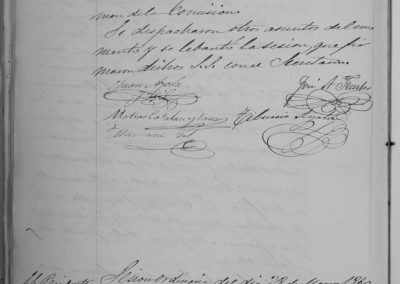 man de la Comision
Se despacharon otros asuntos del mo
mento y se lebantó la sesion, que fir
maron dichos S.S. con el Secretario.
Juan Ayala José A. Fuentes
Matias Catalan y Tiburcio Ayala
Sesion ordinaria del dia de